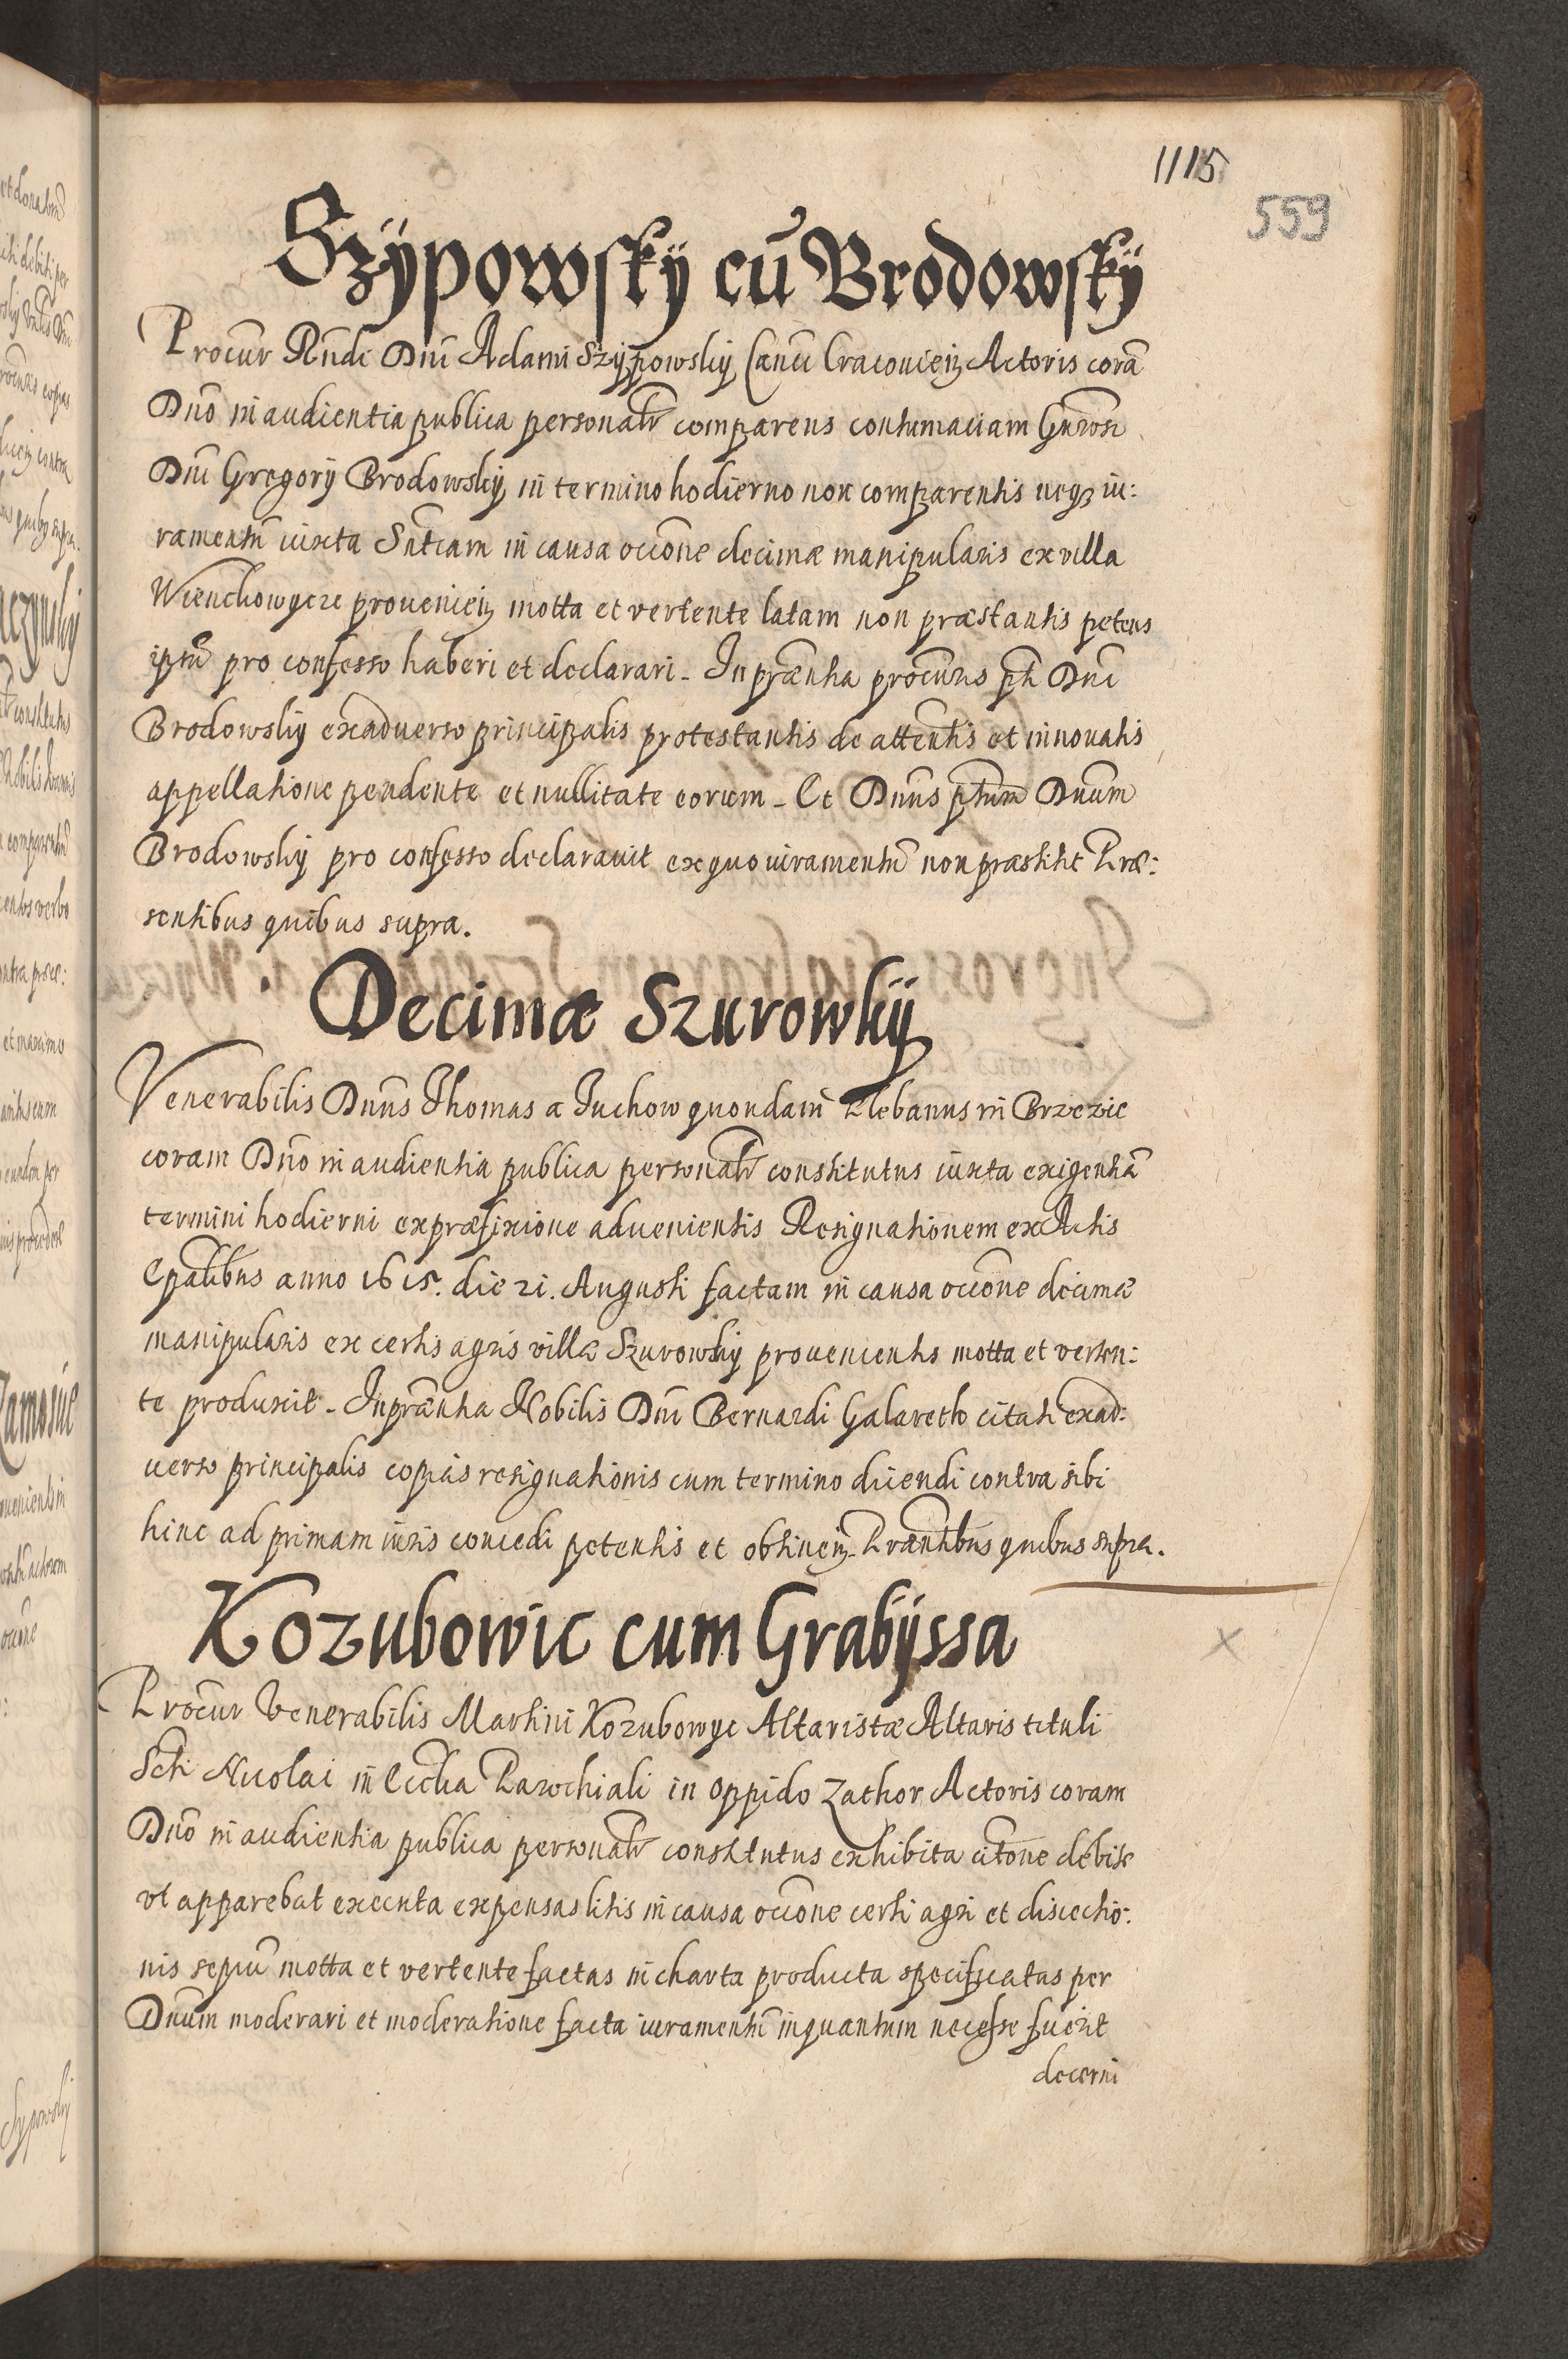 1115
559
Szÿpowskÿ cū Brodowskÿ
Procur Rndi Dni Adami Szÿpowskÿ Canci Cracovien Actoris corā
Dno in audientia publica personalr comparens contumaciam Gnrosi
Dni Gregorÿ Brodowskÿ in termino hodierno non comparentis neq3 iu:
ramentū iuxta Sntiam in causa occone decimæ manipularis ex villa
Wienchowycze provenien motta et vertente latam non præstantis petens
ipsū pro confesso haberi et declarari - In præntia procuris pti Dni
Brodowskÿ exadverso principalis protestantis de attentis et innovatis
appellatione pendente et nullitate eorum - Et Dnus ptum Dnum
Brodowskÿ pro confesso declaravit ex quo iuramentū non præstitit Præ:
sentibus quibus supra.
Decimæ Szurowkÿ
Venerabilis Dnus Thomas a Tuchow quondam Plebanus in Brzezie
coram Dno in audientia publica personalr constitutus iuxta exigentiā
termini hodierni ex præfixione advenientis Resignationem ex Actis
Epalibus anno 1615. die 21. Augusti factam in causa occone decimæ
manipularis ex certis agris villæ Szurowskÿ provenientis motta et verten:
te produxit - In præntia Nobilis Dni Bernardi Galareth citati exad:
verso principalis copiās resignationis cum termino dicendi contra sibi
hinc ad primam iuris concedi petentis et obtinen. Præntibus quibus supra.
Kozubowic cum Grabÿssa
Procur Venerabilis Martini Kozubowyc Altaristæ Altaris tituli
Scti Nicolai in Ecclia Parochiali in oppido Zathor Actoris coram
Dno in audientia publica personalr constitutus exhibita citone debite
vt apparebat executa expensas litis in causa occone certi agri et disectio:
nis sepiū motta et vertente factas in charta producta specificatas per
Dnum moderari et moderatione facta iuramentū inquantum necesse fuerit
decerni